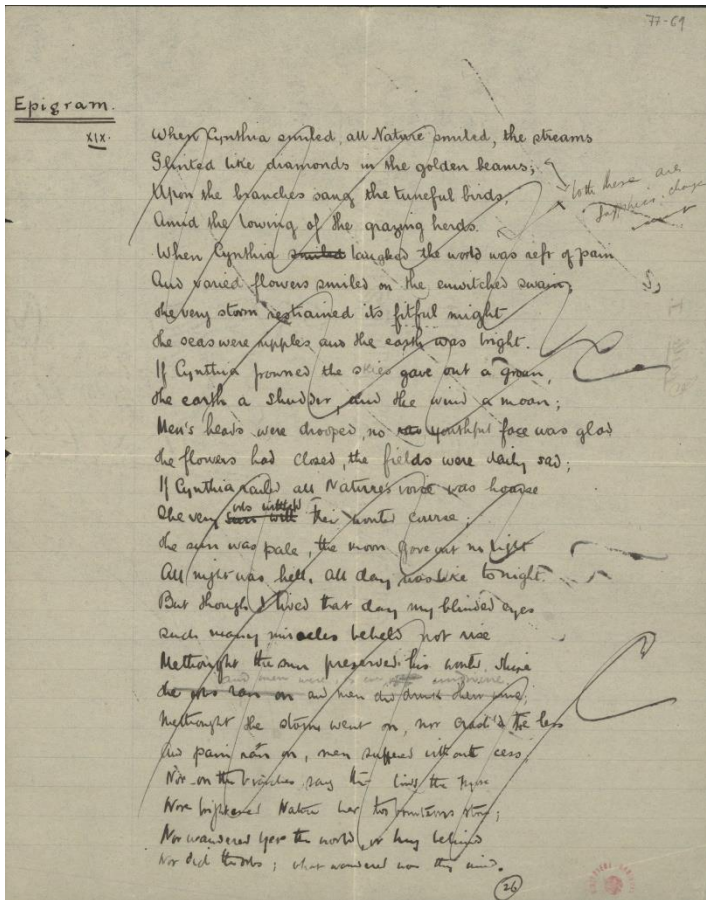 77-69
Epigram.
XIX.
When Cynthia smiled, all Nature smiled, the streams
Glinted like diamonds in the golden beams;
Upon the branches sang the tuneful birds,
Amid the lowing of the grazing herds.
both these are
When Cynthia smiled laughed the world was reft of pain
And varied flowers smiled on the enwitched swain,
The very storm restrained its fitful might
The seas were ripples and the earth was bright.
If Cynthia frowned the skies gave out a groan,
The earth a shudder, and the wind a moan;
Men's heads were drooped, no youthful face was glad
The flowers had closed, the fields were daily sad;
If Cynthia railed all Nature's voice was hoarse
The very orbs their wonted course;
The sun was pale, the moon gave out no light
All night was hell, all day was like to night.
But though I lived that day my blinded eyes
Such many miracles beheld not rise
Methought the sun preserved his wonted shine
The orbs ran on and men did drink their wine;
Methought the storms went on, nor the less
And pain ran on, men suffered without cess,
Nor on the branches sang the birds the more
Nor brightened Nature her store;
Nor wandered yet the world, or hung behind
Nor did the orbs; what wandered was this mind.
26